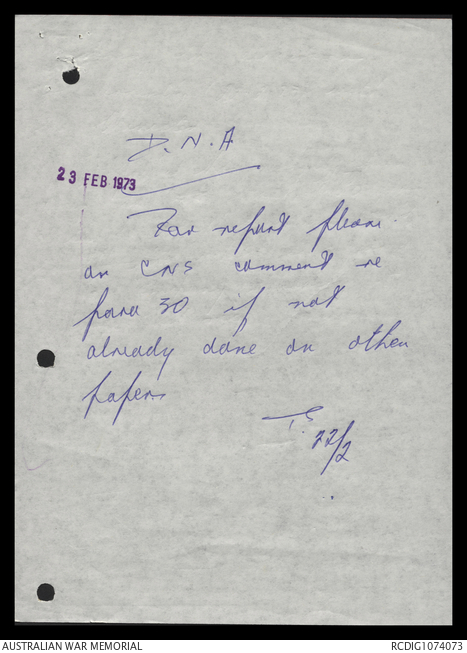 D.N.A
23 FEB 1973
For report please
on CNS comment re
para 30 if not
already done on other
papers
TS
22/2
AUSTRALIAN WAR MEMORIAL
RCDIG1074073